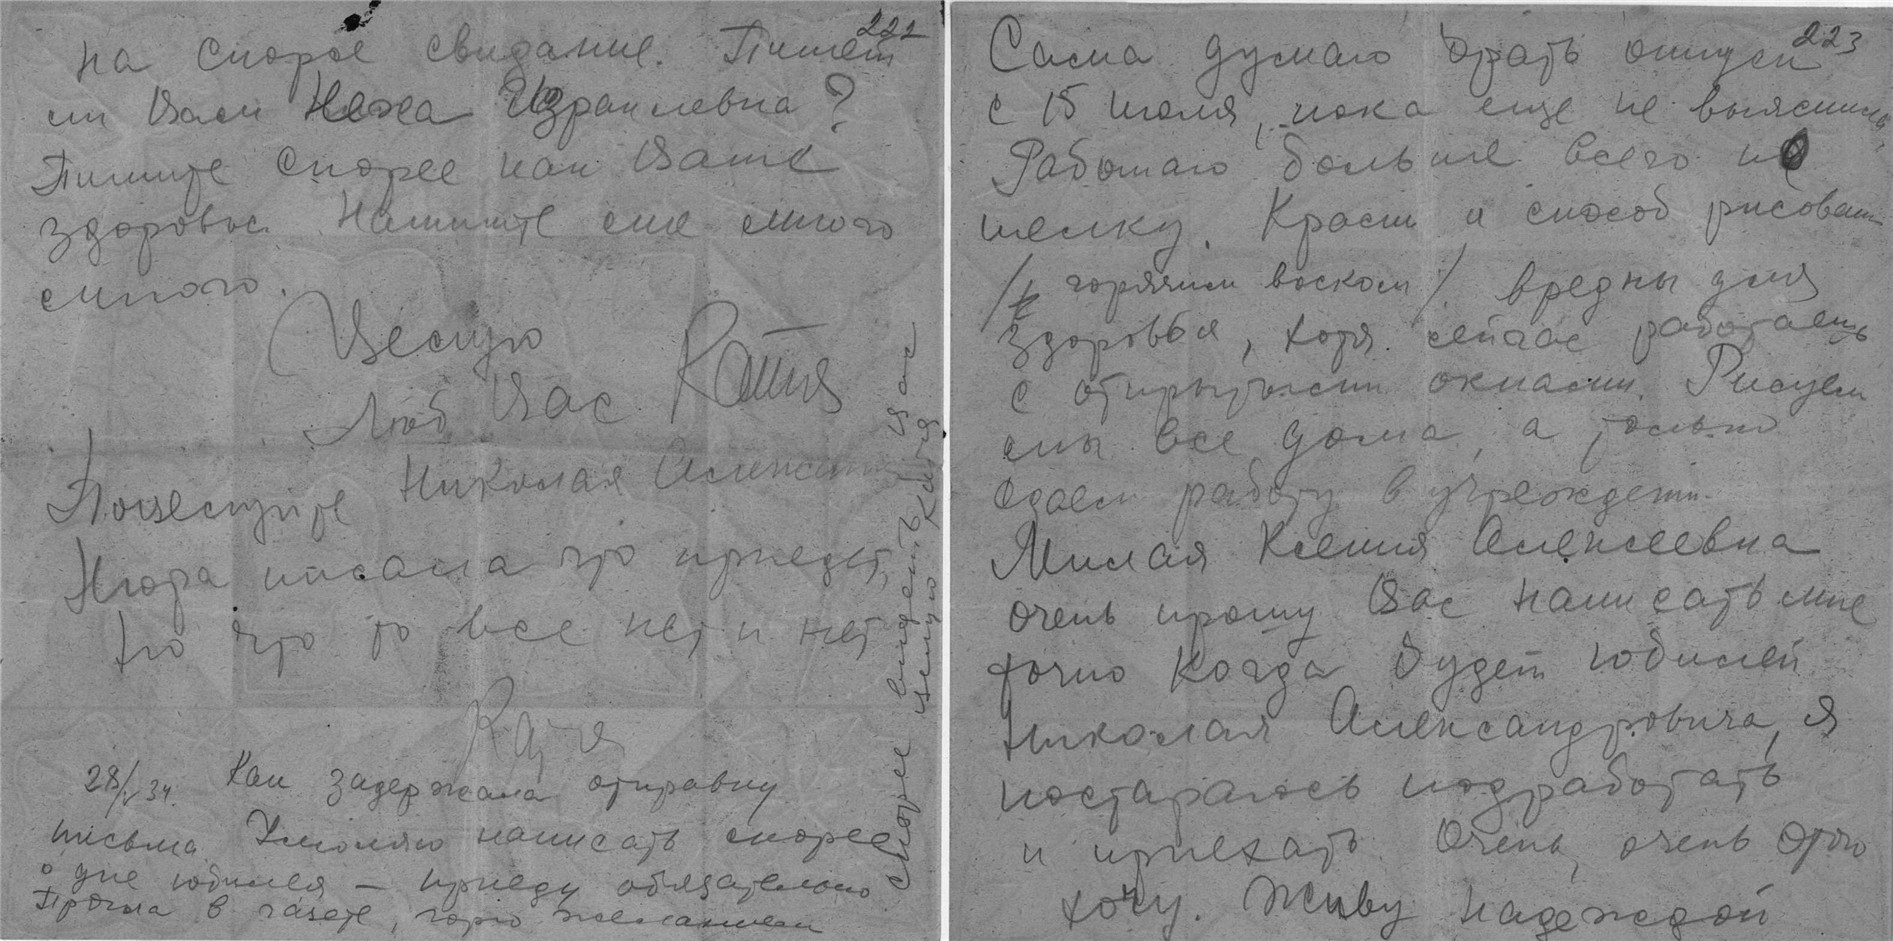 222
на скорое свидание. Пишет
ли Вам Неха Израилевна?
Пишите скорее как Ваше
здоровье. Напишите мне много
много.
Целую
Люб Вас Катя
Поцелуйте Николая
Нюра писала что приедет,
но что то все нет и нет
Катя
28/V 34. Как задержала отправку
письма Умоляю написать скорее
о дне юбилея — приеду обязательно
Прочла в газете, горю желанием
скорее видеть Вас
целую Катя
223
Сама думаю брать отпуск
с 15 июля, пока еще не выяснила,
Работаю больше всего по
шелку. Краски и способ рисовать
/ горячим воском/ вредны для
здоровья, хотя сейчас работаешь
с открытыми окнами. Рисуем
мы все дома, а только
сдаем работу в учрежден.
Милая Ксения Алексеевна
очень прошу Вас написать мне
точно когда будет юбилей
Николая Александровича, я
постараюсь подработать
и приехать. Очень, очень этого
хочу. Живу надеждой